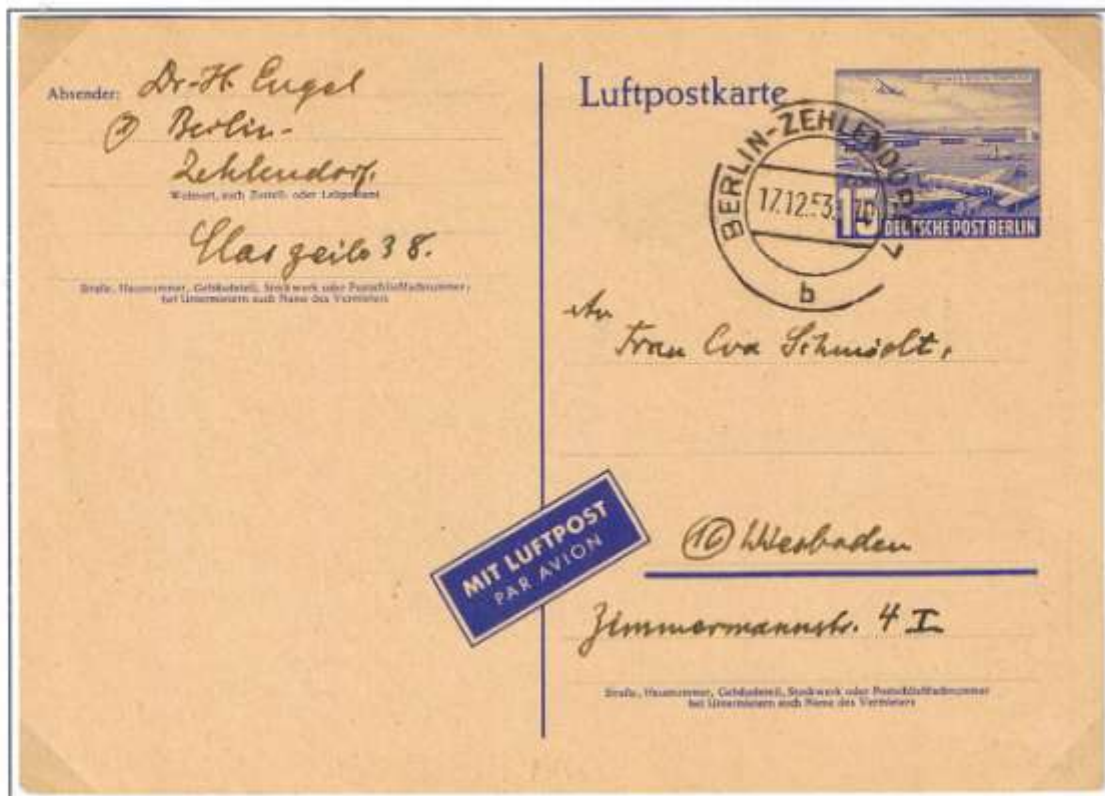 Absender: Dr. H. Engel
Berlin-
Zehlendorf.
Wohnort, auch Zustell- oder Leitpostamt
38.
Straße, Hausnummer, Gebäudeteil, Stockwerk oder Postschließfachnummer;
bei Untermietern auch Name des Vermieters
Luftpostkarte
BERLIN-ZEHLENDORF 1
17.12.53
b
15 DEUTSCHE POST BERLIN
An
Frau Eva Schmidt,
MIT LUFTPOST
PAR AVION
(16) Wiesbaden
Zimmermannstr. 4 I
Straße, Hausnummer, Gebäudeteil, Stockwerk oder Postschließfachnummer
bei Untermietern auch Name des Vermieters